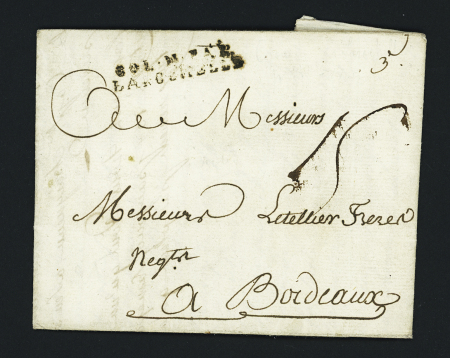 COL. M. PAR
LAROCHELLE
3
A Messieurs
15
Messieurs Letellier Freres
Negts
A Bordeaux